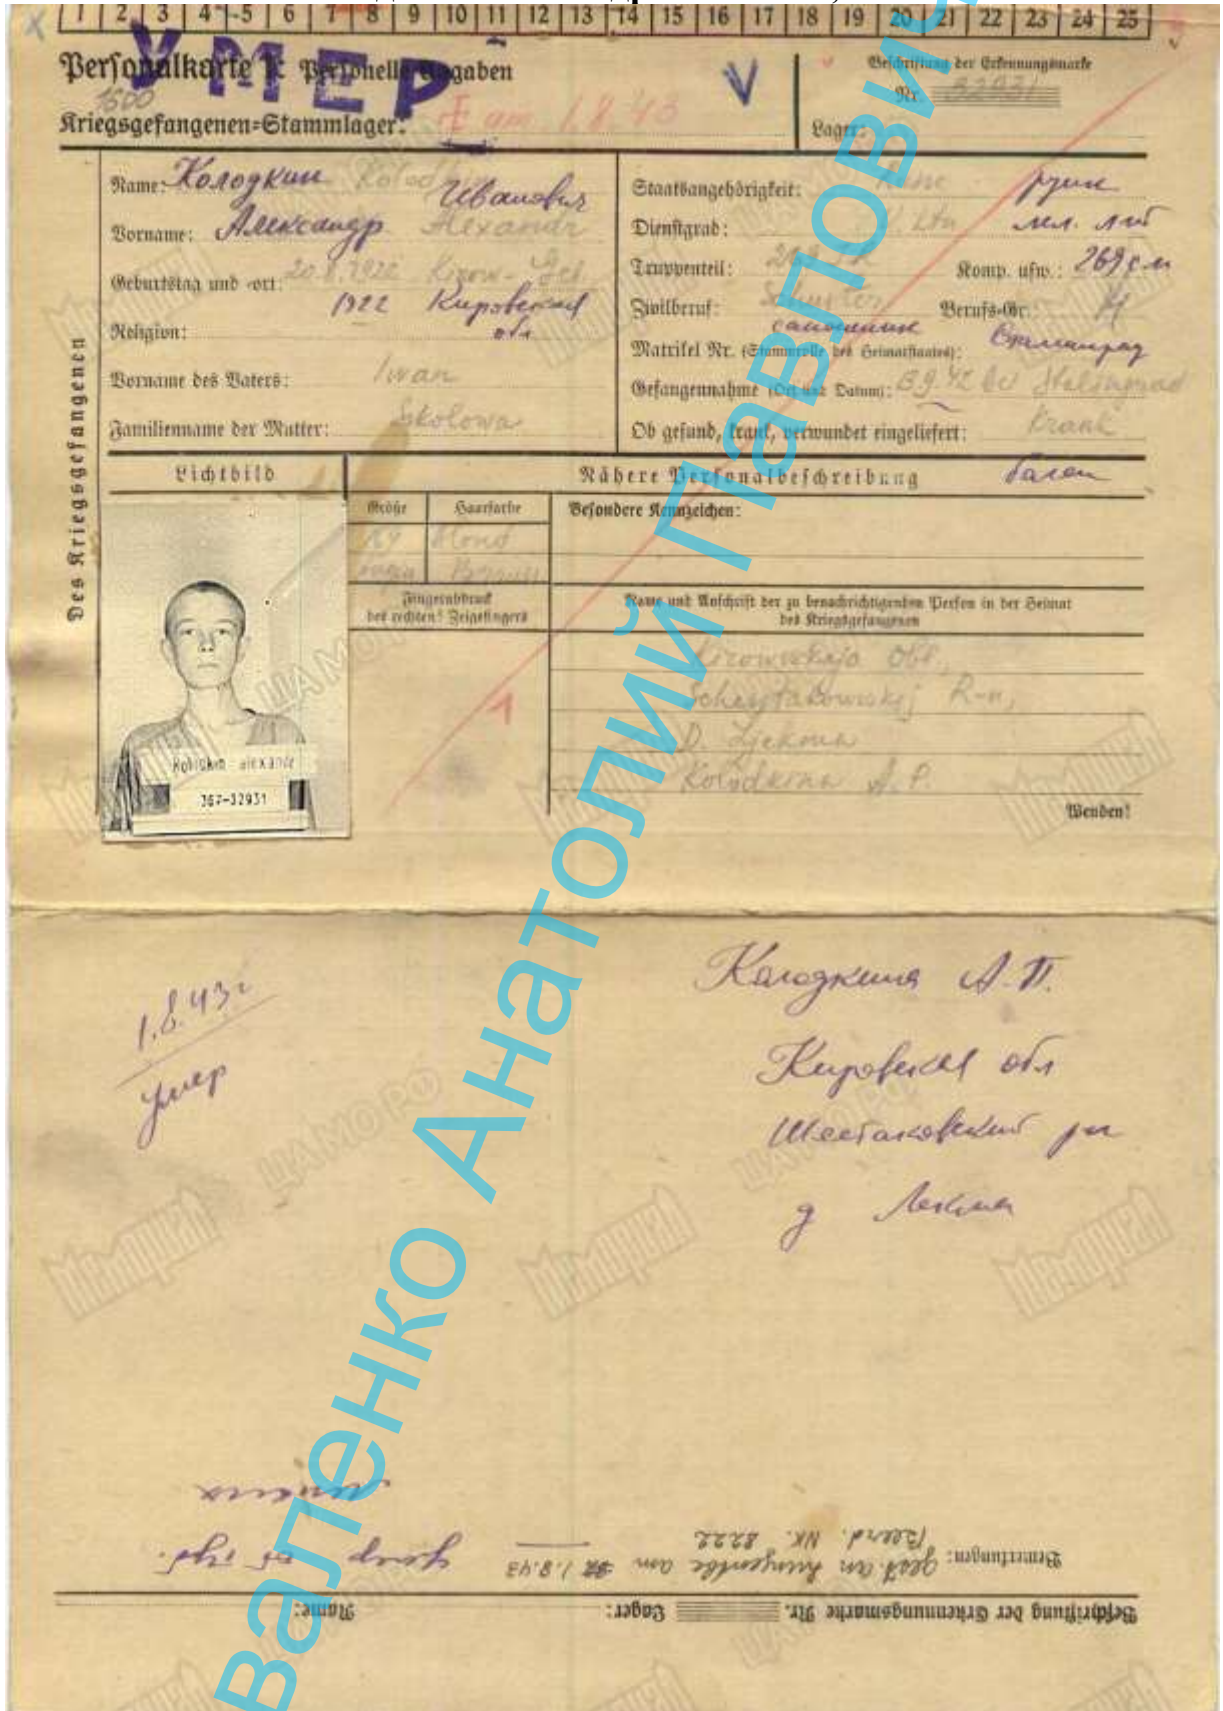 1 2 3 4 5 6 7 8 9 10 11 12 13 14 15 16 17 18 19 20 21 22 23 24 25
Personalkarte I: Personelle Angaben
УМЕР
Beschriftung der Erkennungsmarke
Nr. 32931
Kriegsgefangenen-Stammlager:
am 1.8.43
Lager:
Des Kriegsgefangenen
Name: Колодкин
Иванович
Vorname: Александр Alexander
Geburtstag und -ort: 20.8.1922 Kirow-Geb
1922 Кировская
обл
Religion:
Vorname des Vaters: Iwan
Familienname der Mutter: Skolowa
Staatsangehörigkeit: русск
Dienstgrad: Ltn мл. лит
Truppenteil: Komp. usw.: 269 с.п
Zivilberuf: Schuster Berufs-Gr.:
сапожник
Matrikel Nr. (Stammrolle des Heimatstaates): Сталинград
Gefangennahme (Ort und Datum): 3.9.42 bei Stalingrad
Ob gesund, krank, verwundet eingeliefert: Krank
болен
Lichtbild
Nähere Personalbeschreibung
Größe Haarfarbe
Besondere Kennzeichen:
blond
Fingerabdruck
des rechten! Zeigefingers
Name und Anschrift der zu benachrichtigenden Person in der Heimat
des Kriegsgefangenen
Kirowskaja Obl.,
Schestakowskij R-n,
D. Ljekma
Kolodkina A.P.
Kolodkin Alexande
367-32931
Wenden!
Колодкина А.П.
Кировская обл
Шестаковский рн
д Лекма
1.8.43г
умер
легких
умер от туб.
Bemerkungen: gest. an Lungentbc am 1.8.43
Beerd. Nr. 8222
Beschriftung der Erkennungsmarke Nr. Lager: Name:
Мемориал
ЦАМО РФ
Валенко Анатолий Павлович